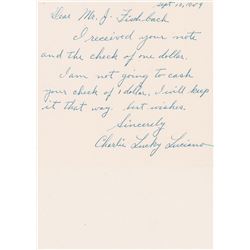 Sept 10, 1959
Dear Mr. J. Fishbach
I received your note
and the check of one dollar.
I am not going to cash
your check of 1 dollar. I will keep
it that way best wishes.
Sincerely
Charlie Lucky Luciano